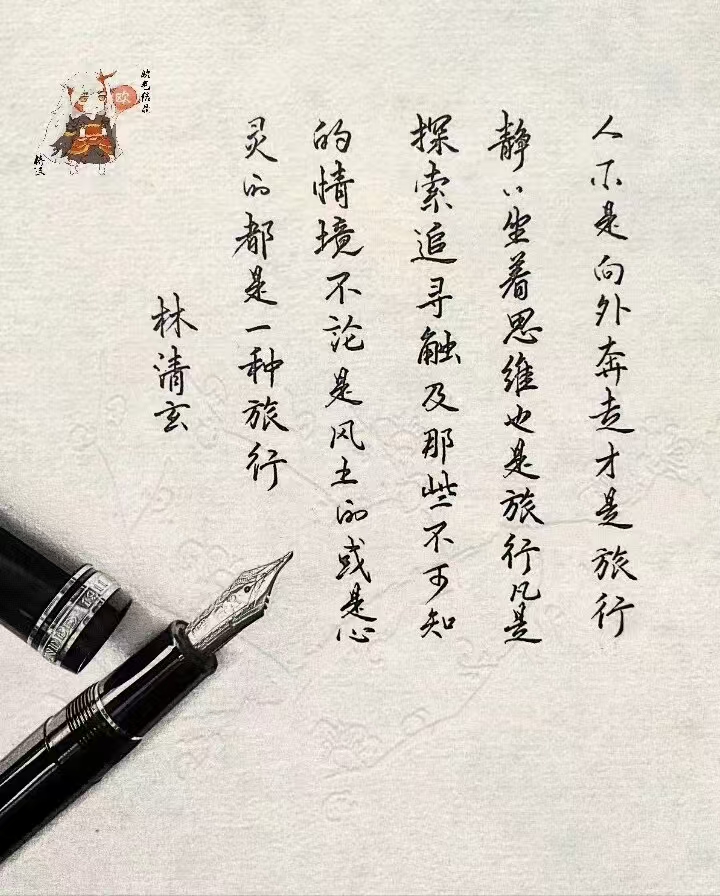 人不是向外奔走才是旅行
静静坐着思维也是旅行凡是
探索追寻触及那些不可知
的情境不论是风土的或是心
灵的都是一种旅行
林清玄
欧